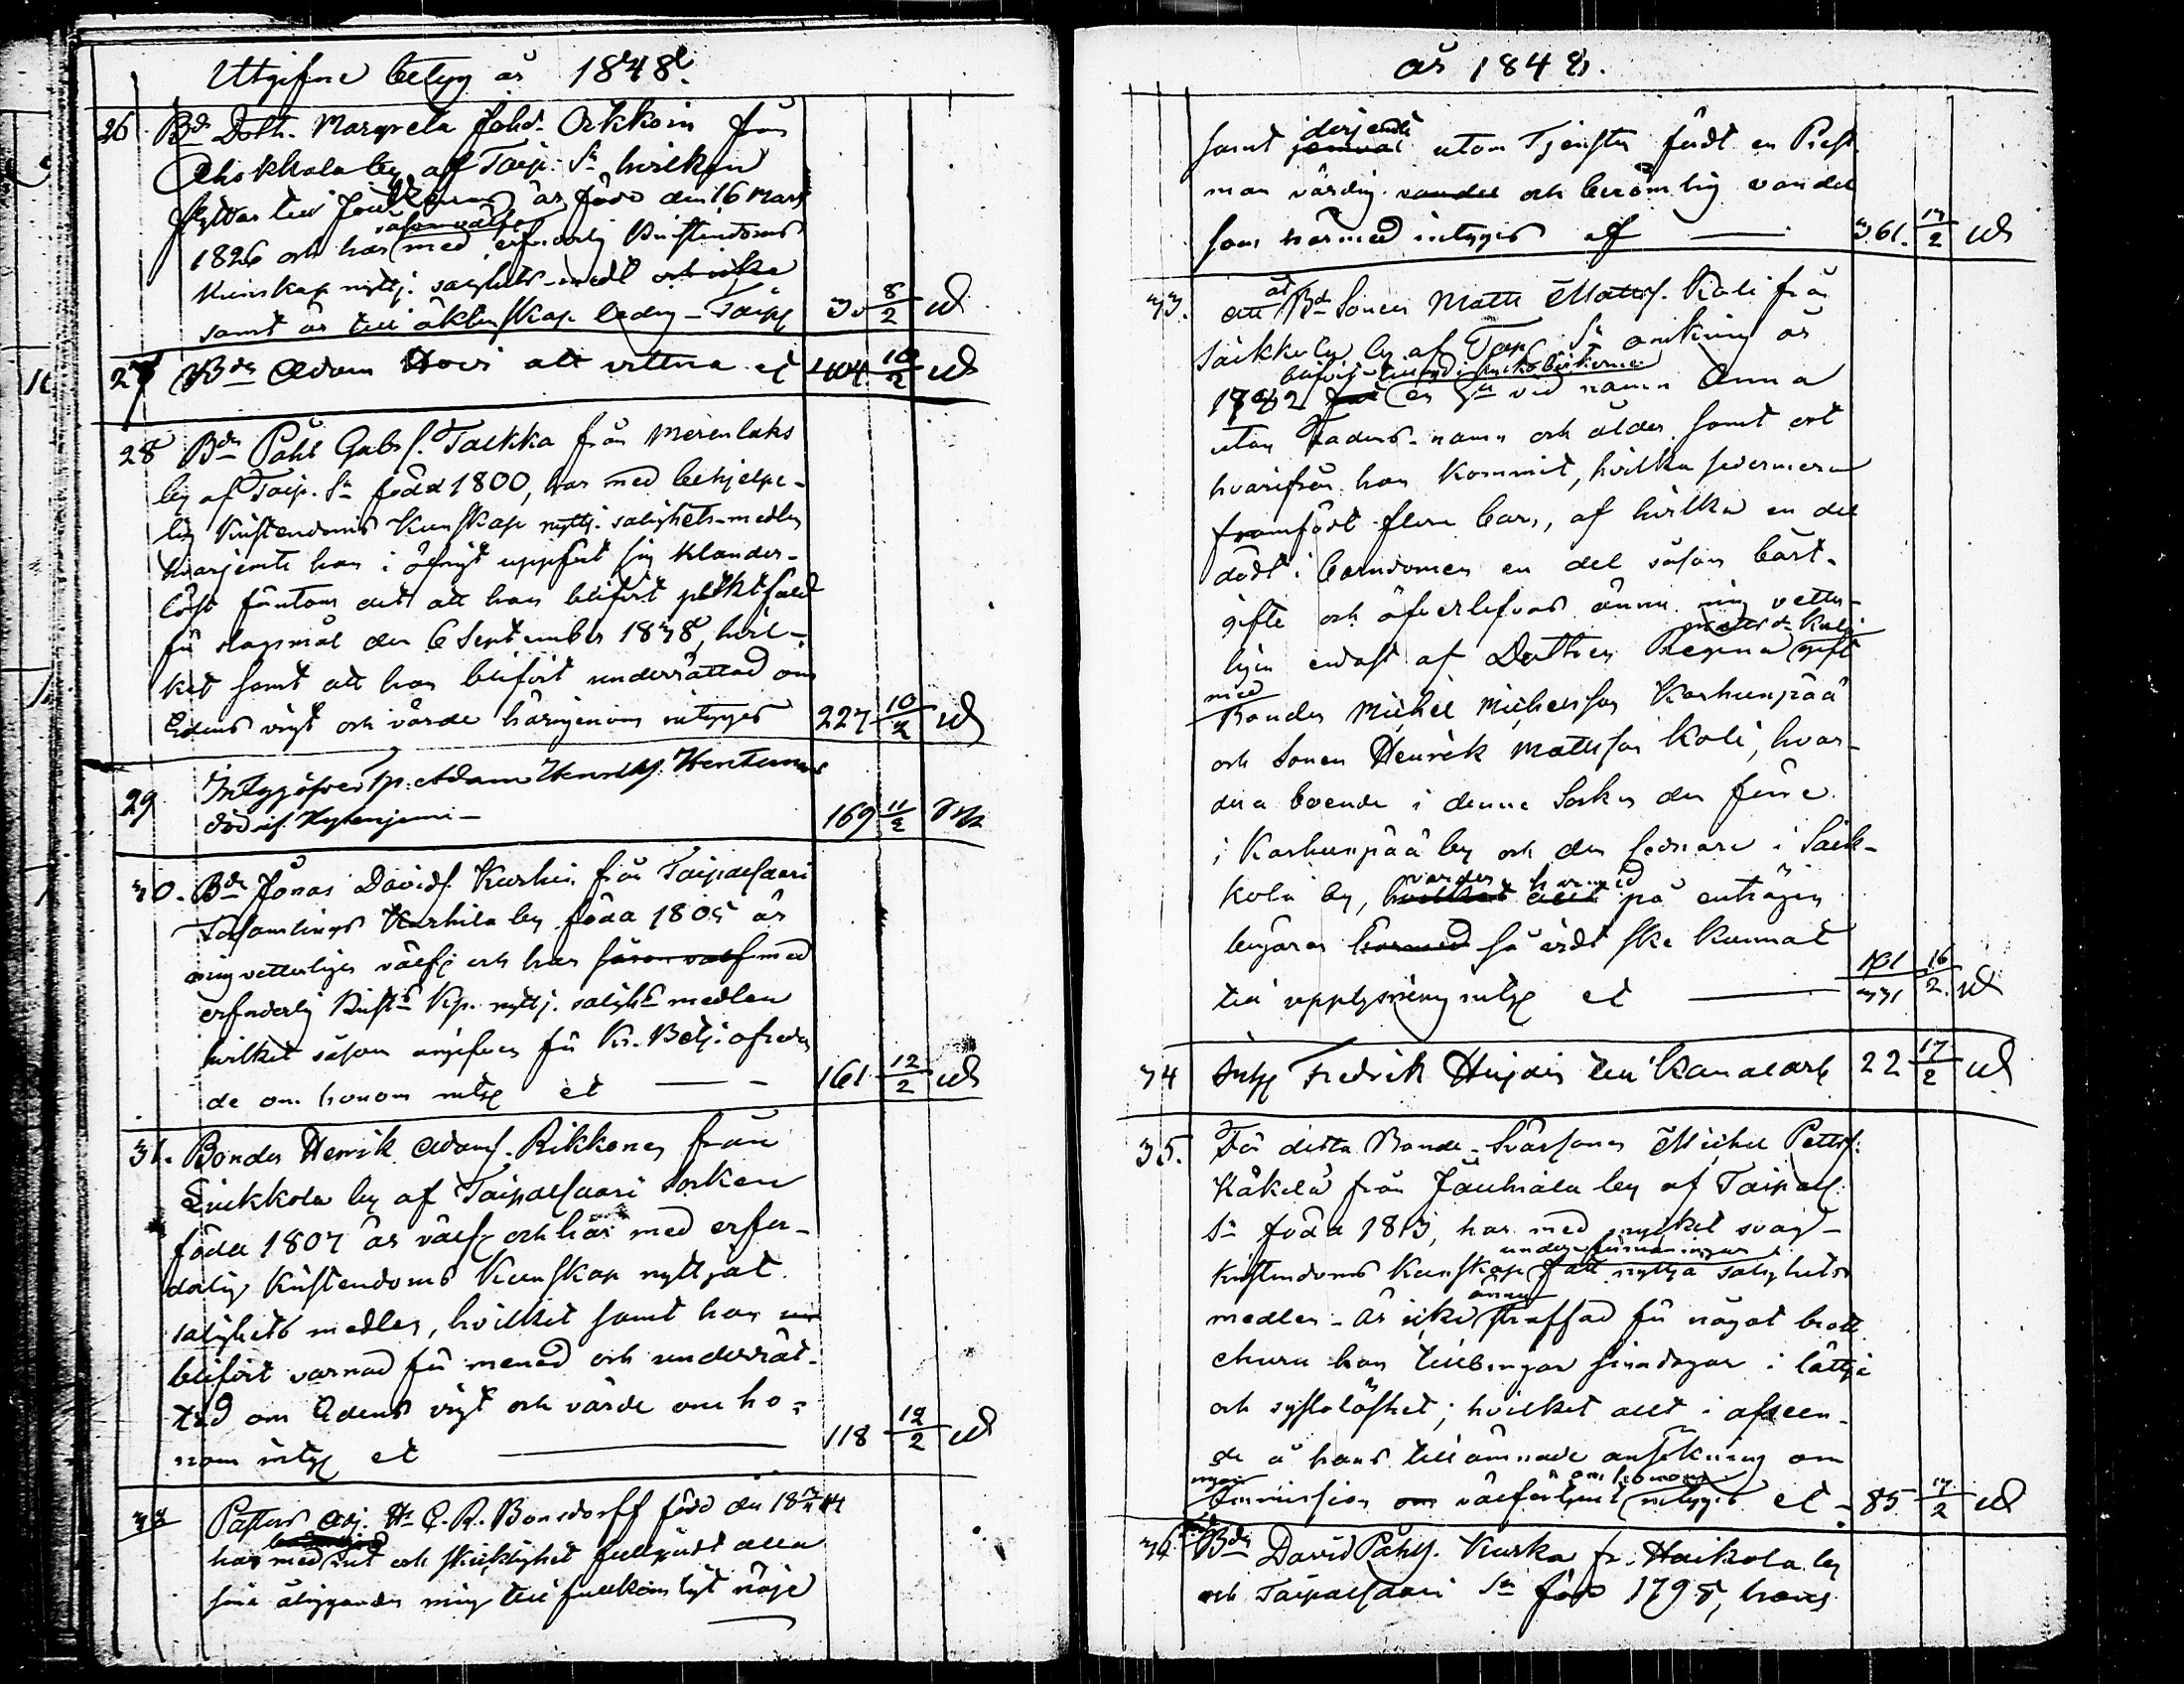 Utgifne betyg år 1848.
26. Bde Dottr. Margreta Johsdr Orkkoin från
Ahokkala by af Taip. Sn hvilken
flyttar till är född den 16 Mars
1826 och har såsom välfr med erforderlig Kristendoms
kunskap nyttj. salighets-medl och icke
samt är till äktenskap ledig - Taipl 30 8/2 ud
27 Bdn Adam Hovi att vittna et 404 10/2 ud
28 Bdn Påhl Gabrs. Talkka från Merenlaks
by af Taip. Sn född 1800, har med behjelpe-
lig Kristendoms Kunskap nyttj. salighets-medlen
hvarjemte han i öfrigt uppfört sig klander-
löst förutom det att han blifvit pliktfäld
för slagsmål den 6 September 1838, hvil-
ket samt att han blifvit underrättad om
Edens vigt och värde härigenom intygas 227 10/2 ud
29 Adam Henriks. Hentunen
död i 169 11/2
30. Bdn Jonas Davids. Karhu från Taipalsaari
Församlings Karhila by född 1805 är
mig vetterligen välfr och har såsom välfr med
erforderlig Kristds Kp. nyttj. salighets medlen
hvilket såsom angifven för Kr. Betj. afreden
de om honom intyg et — 161 12/2 ud
31. Bonden Henrik Adams. Rikkonen från
Suikkola by af Taipalsaari Socken
född 1807 är välfr och har med erfor-
dalig Kristendoms Kunskap nyttjat
salighets medlen, hvilket samt han
blifvit varnad för mened och underrät-
tad om Edens vigt och värde om ho-
nom intyg et — 118 12/2 ud
32 Pastors Adj. Hr C. R. Bonsdorff född den 18
har med nit och skicklighet fullgjort alla
sina åligganden mig till fullkomligt nöje
år 1848.
samt derjemte utom Tjensten fört en Prest-
man värdig vandel och berömlig vandel
som härmed intygas af — 361. 13/2 ud
33. att åt Bde Sonen Matts Matts. Koli från
Säikkola by af Taip Sn omkring år
1782 blifvit en qn vid namn Anna
utan Faders-namn och ålder samt ort
hvarifrån hon kommit, hvilka sedermera
framfödt flere barn, af hvilka en del
dödt i barndomen en del såsom bort-
gifte och öfverlefvas ännu mig vetter-
ligen endast af Dottren Regina Mattsdr Koli gift
med Bonden Michel Michelsson Karhunpää
och Sonen Henrik Mattsson Koli, hvar-
dera boende i denne Socken den förre
i Karhunpää by och den sednare i Säik-
kola by, hvilket allt varder härmed på enträgen
begäran härmed så vidt ske kunnat
till upplysning intyg et — 101 331 16/2 ud
34 Intyg Fredrik till 22 17/2 ud
35. För detta Bonde-Svärsonen Michel Petters.
Käkelä från Jauhiala by af Taipals.
Sn född 1813, har med mycket svag
Kristendoms Kunskap under förmaningar fått nyttja salighets
medlen - är icke ännu straffad för något brott
ehuru han tillbringar sina dagar i lättja
och sysslolöshet; hvilket allt i afseen-
de å hans tillämnade ansökning om
om välförtjent om honom intygas et - 85 17/2 ud
36 Bdn David Påhls. Kurka fr. Haikola by
och Taipalsaari Sn född 1798, hvars